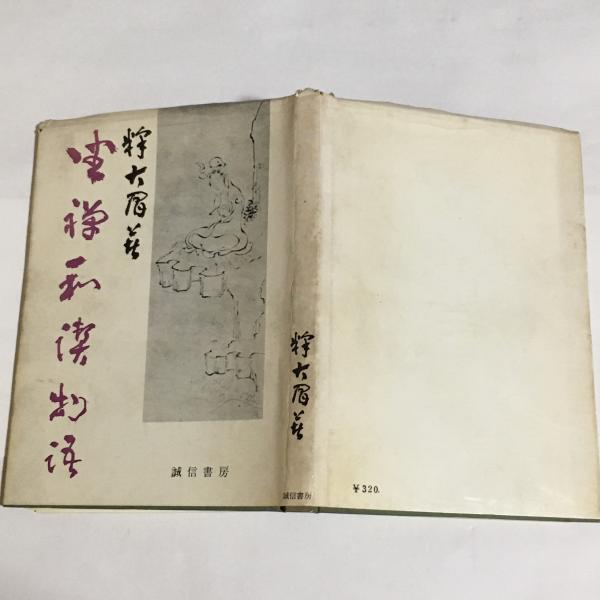 釋大眉著
坐禅和讃物語
誠信書房
釋大眉著
誠信書房
¥320.